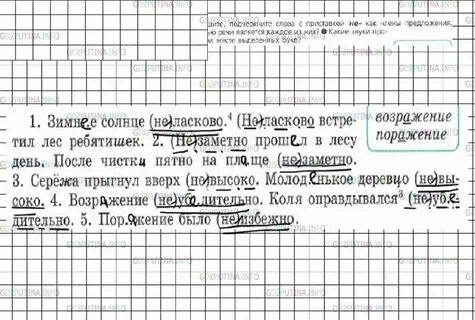 шите, подчеркните слова с приставкой не- как члены предложения.
ью речи является каждое из них? Какие звуки про-
на месте выделенных букв?
возражение
поражение
1. Зимнее солнце (не)ласково.⁴ (Не)ласково встре-
тил лес ребятишек. 2. (Не)заметно прошел в лесу
день. После чистки пятно на плаще (не)заметно.
3. Серёжа прыгнул вверх (не)высоко. Молоденькое деревцо (невы-
соко. 4. Возражение (не)убедительно. Коля оправдывался³ (не)убе
дительно. 5. Поражение было (не)избежно.
GOZPUTINA.INFO